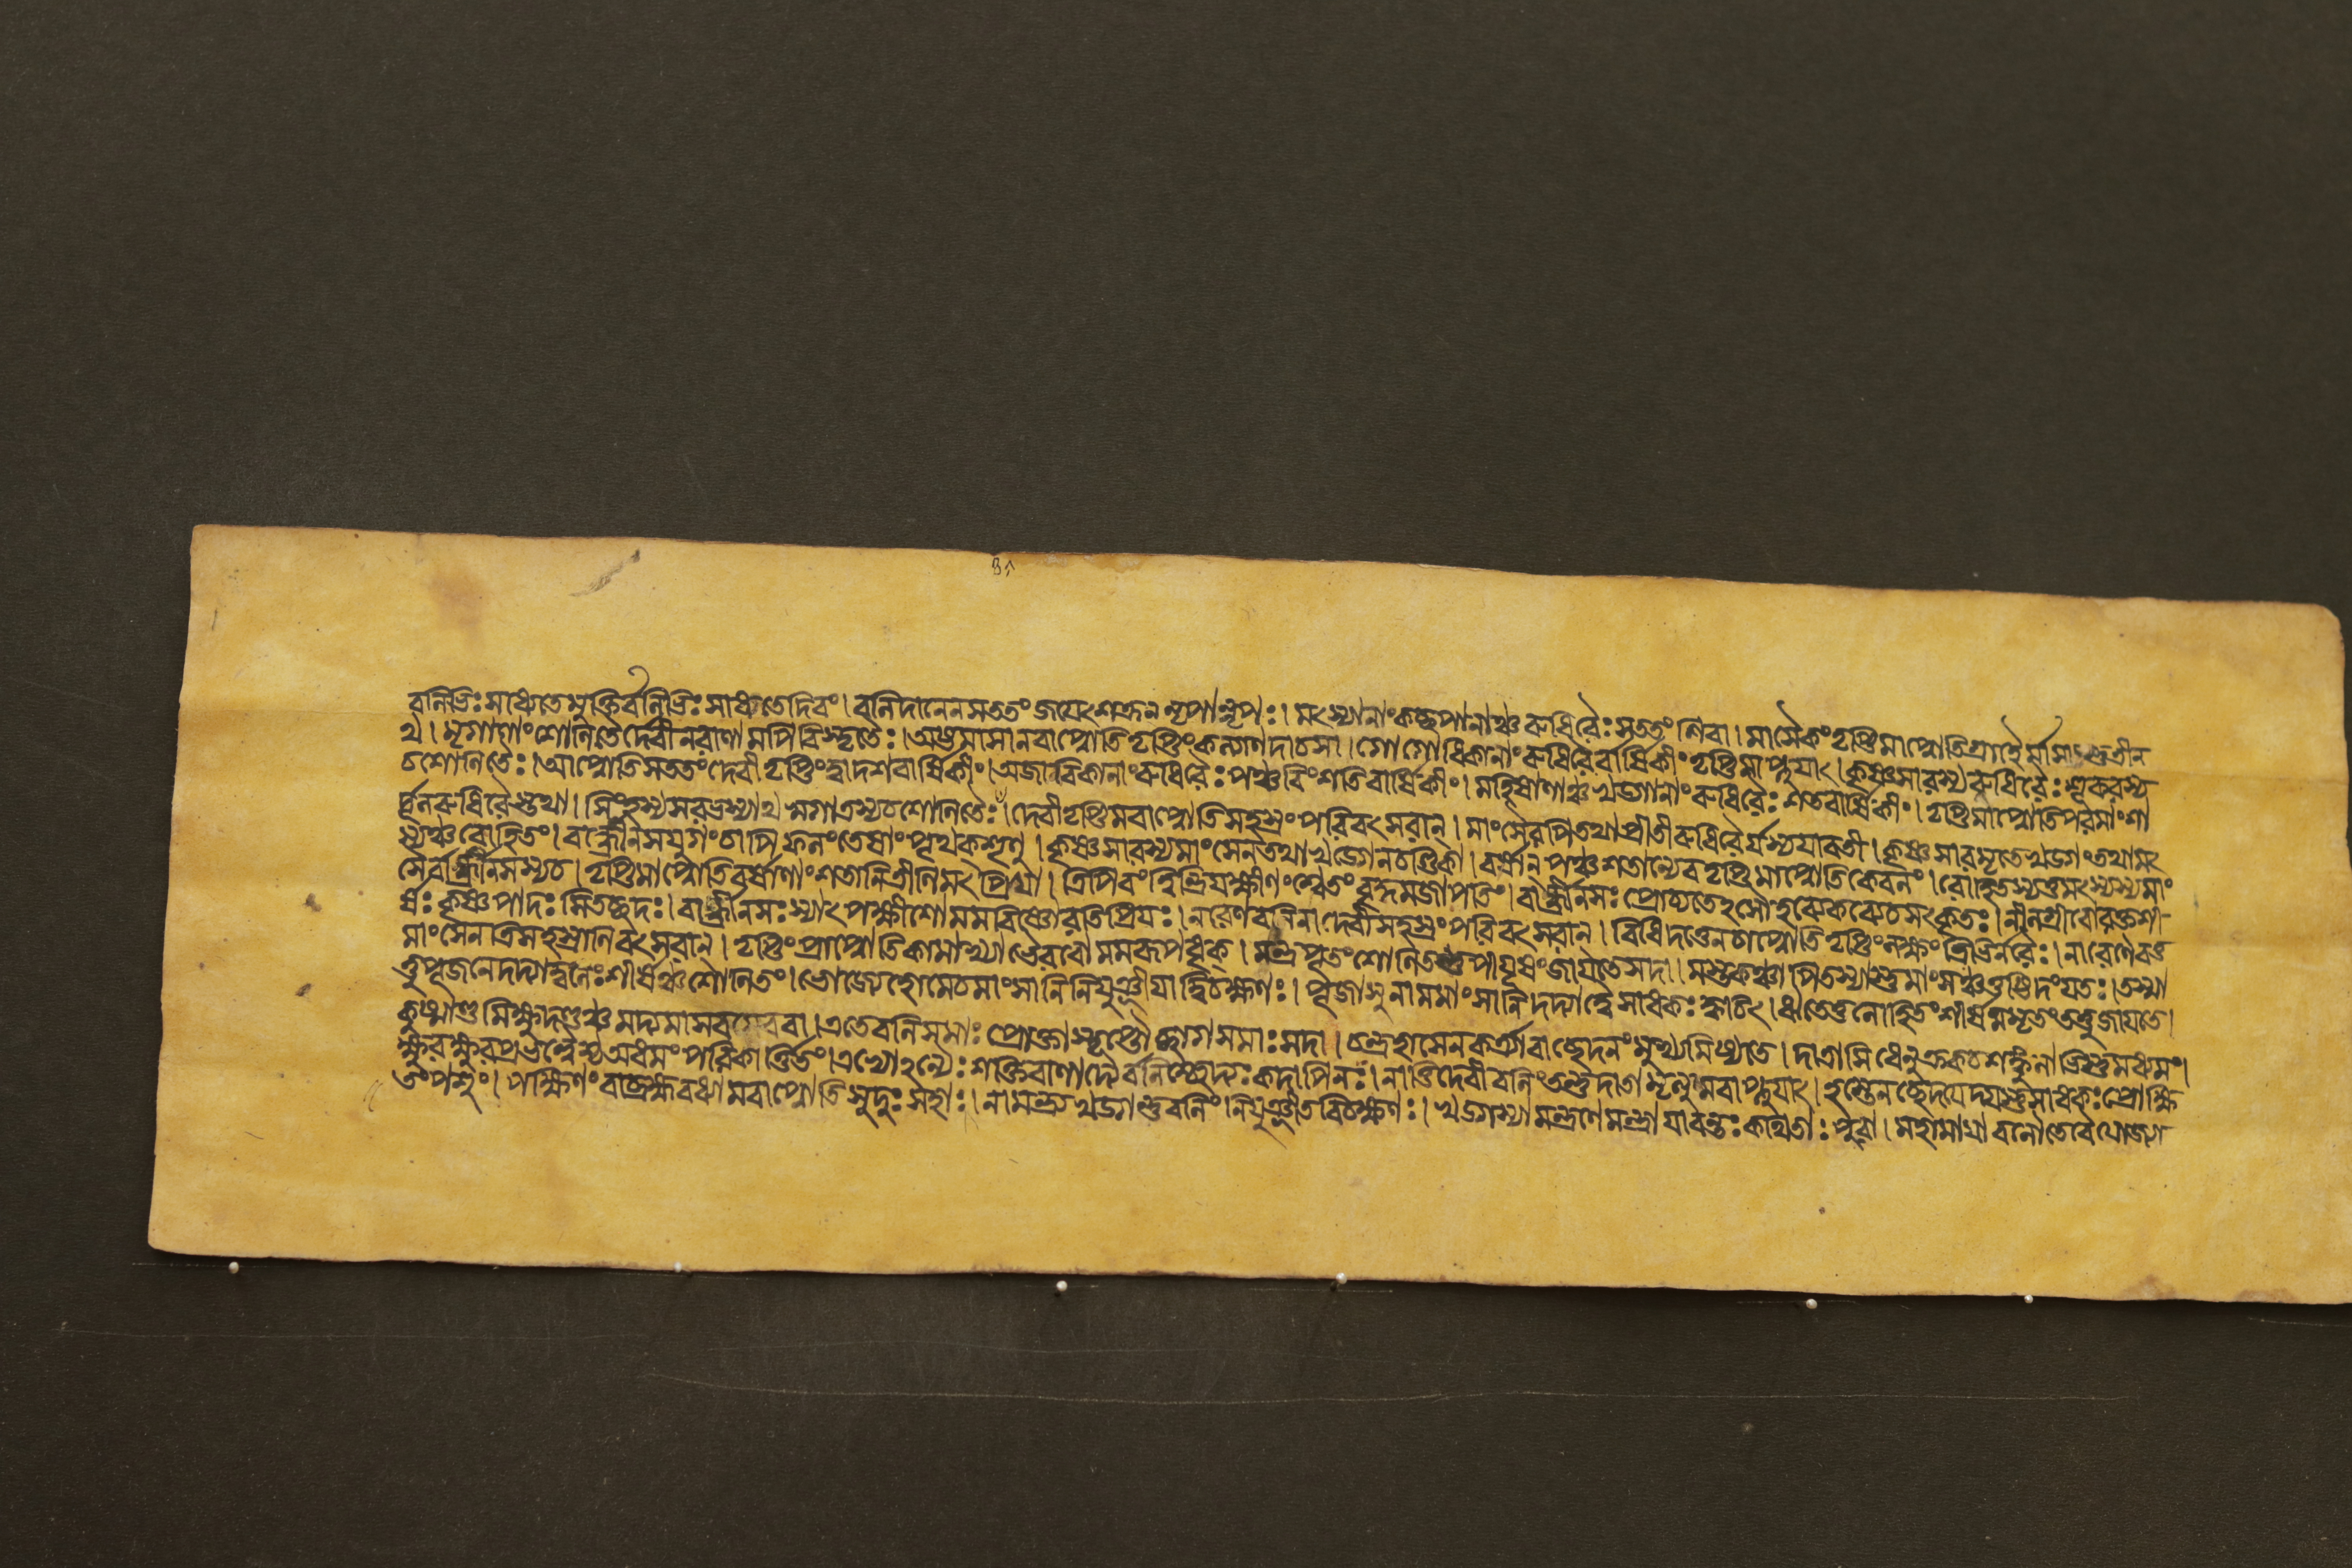 বলিভিঃ সাধ্যতে মুক্তির্বলিভিঃ সাধ্যতে দিবং। বলিদানেন সততং জয়েৎ শত্রূন নৃপান্নৃপঃ। মৎস্যানাং কচ্ছপানাঞ্চ রুধিরৈঃ সততং শিবা। মাসৈকং তৃপ্তিমাপ্নোতি গ্রাহৈর্মাসাংস্তু ত্রীন
থ। মৃগাণাং শোণিতৈর্দেবী নরাণামপি বিস্তৃতৈঃ। অষ্টমাসানবাপ্নোতি তৃপ্তিং কল্যাণদা চ সা। গোগোধিকানাং রুধিরৈর্বার্ষিকীং তৃপ্তিমাপ্নুয়াৎ। কৃষ্ণসারস্য রুধিরৈঃ শূকরস্য
চ শোণিতৈঃ। আপ্নোতি সততং দেবী তৃপ্তিং দ্বাদশবার্ষিকীং। অজাবিকানাং রুধিরৈঃ পঞ্চবিংশতিবার্ষিকীং। মহিষাণাঞ্চ খড্গানাং রুধিরৈঃ শতবার্ষিকীং। তৃপ্তিমাপ্নোতি পরমাং শা
র্দ্দূলরুধিরৈস্তথা। সিংহস্য সরভস্যাথ স্বগাত্রস্য চ শোণিতৈঃ। দেবী তৃপ্তিমবাপ্নোতি সহস্রং পরিবৎসরান্। মাংসৈরপি তথা প্রীতী রুধিরৈর্যস্য যাবতী। কৃষ্ণসারমৃতে খড্গং তথা মৎ
স্যঞ্চ রোহিতং। বার্দ্ধ্রীনসযুগং চাপি ফলং তেষাং পৃথক্ শৃণু। কৃষ্ণসারস্য মাংসেন তথা খড্গেন চণ্ডিকা। বর্ষান্ পঞ্চশতান্যেব তৃপ্তিমাপ্নোতি কেবলং। রোহিতস্য তু মৎস্যস্য মাং
সৈর্বার্দ্ধ্রীনসস্য চ। তৃপ্তিমাপ্নোতি বর্ষাণাং শতানি ত্রীণি মৎপ্রিয়া। ত্রিপিবং ত্বিন্দ্রিয়ক্ষীণং শ্বেতং বৃদ্ধমজাপতিং। বার্দ্ধ্রীনসঃ প্রোচ্যতে
র্ষঃ কৃষ্ণপাদঃ সিতচ্ছদঃ। বার্দ্ধ্রীনসঃ স্যাৎ পক্ষীশো মম বিষ্ণোরতিপ্রিয়ঃ। নরেণ বলিনা দেবী সহস্রং পরিবৎসরান্। বিধিদত্তেন চাপ্নোতি তৃপ্তিং লক্ষং ত্রিভির্নরৈঃ। নারেণৈবঅ
মাংসেন ত্রিসহস্রাণি বৎসরান্। তৃপ্তিং প্রাপ্নোতি কামাখ্যা ভৈরবো মম রূপধৃক্। মন্ত্রপূতং শোণিতন্তু পীয়ূষং জায়তে সদা। মস্তকঞ্চাপি তস্যাস্তু মাংসঞ্চ যতঃ। তস্মা
ত্তু পূজনে দদ্যাদ্বলেঃ শীর্ষঞ্চ শোণিতং। ভোজ্যে হোমে চ মাংসানি নিযুঞ্জীয়াদ্বিচক্ষণঃ। পূজাসু নামমাংসানি দদ্যাদ্বৈ সাধকঃ ক্বচিৎ। ঋতে তু লোহিতং শীর্ষমমৃতং তত্তু জায়তে।
কুষ্মাণ্ডমিক্ষুদণ্ডঞ্চ মদ্যমাসবমেব বা। এতে বলিসমাঃ প্রোক্তাস্তৃপ্তৌ ছাগসমাঃ সদা। চন্দ্রহাসেন কর্ত্র্যা বা ছেদনং মুখ্যমিষ্যতে। দাত্রাসিধেনুক্রকচশঙ্কুলাভিস্তু মধ্যমং।
ক্ষুরক্ষুরপ্রভল্লৈস্য অধমং পরিকীর্ত্তিতং। এভ্যোঽন্যৈঃ শক্তিবাণাদ্যৈর্বলিশ্ছেদ্যঃ কদাপি নঃ। নাত্তি দেবী বলিং তত্তু দাতা মৃত্যুমবাপ্নুয়াৎ। হস্তেন ছেদয়েদ্যস্তু সাধকঃ প্রোক্ষি
তং পশুং। পক্ষিণং বা ব্রহ্মবধ্যামবাপ্নোতি সুদুঃসহাঃ। নামন্ত্র্য খড্গন্তু বলিং নিযুঞ্জীত বিচক্ষণঃ। খড্গস্যামন্ত্রণে মন্ত্রা যাবন্তঃ কথিতাঃ পুরা। মহামায়া বলৌ তে বৈ যোজ্যা